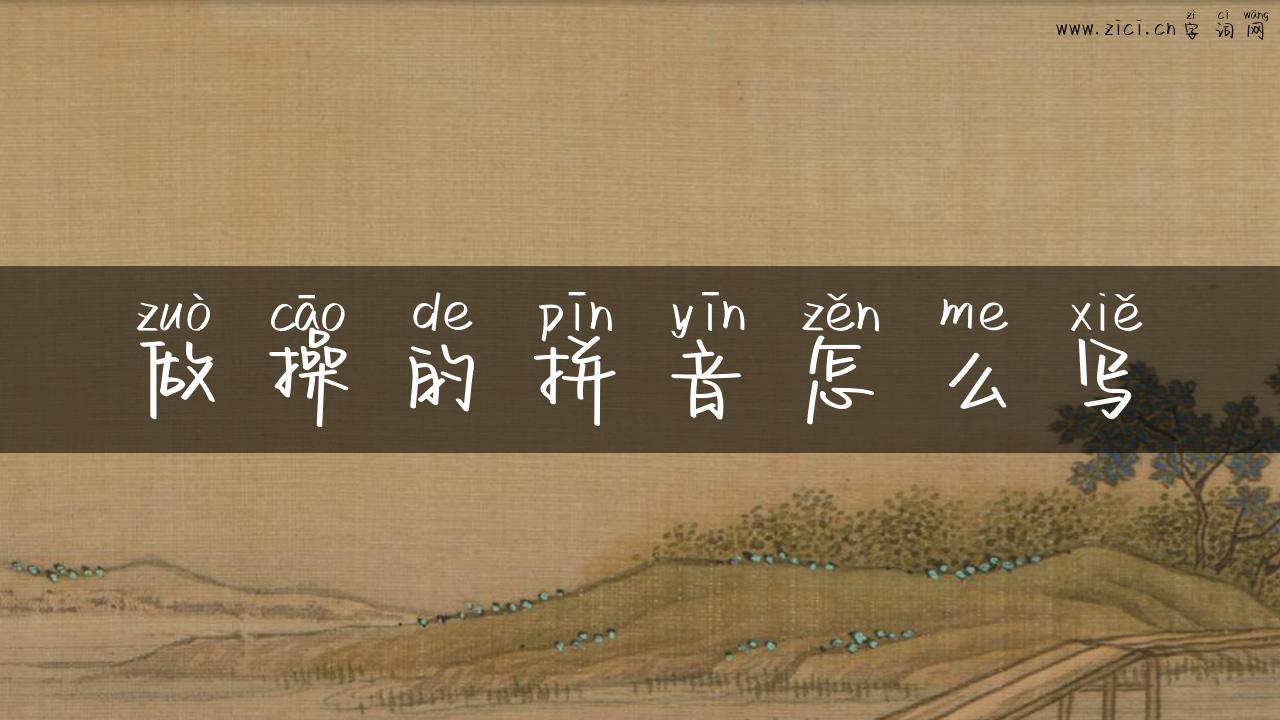 zì cí wǎng
www.zici.cn 字 词 网
zuò cāo de pīn yīn zěn me xiě
做 操 的 拼 音 怎 么 写